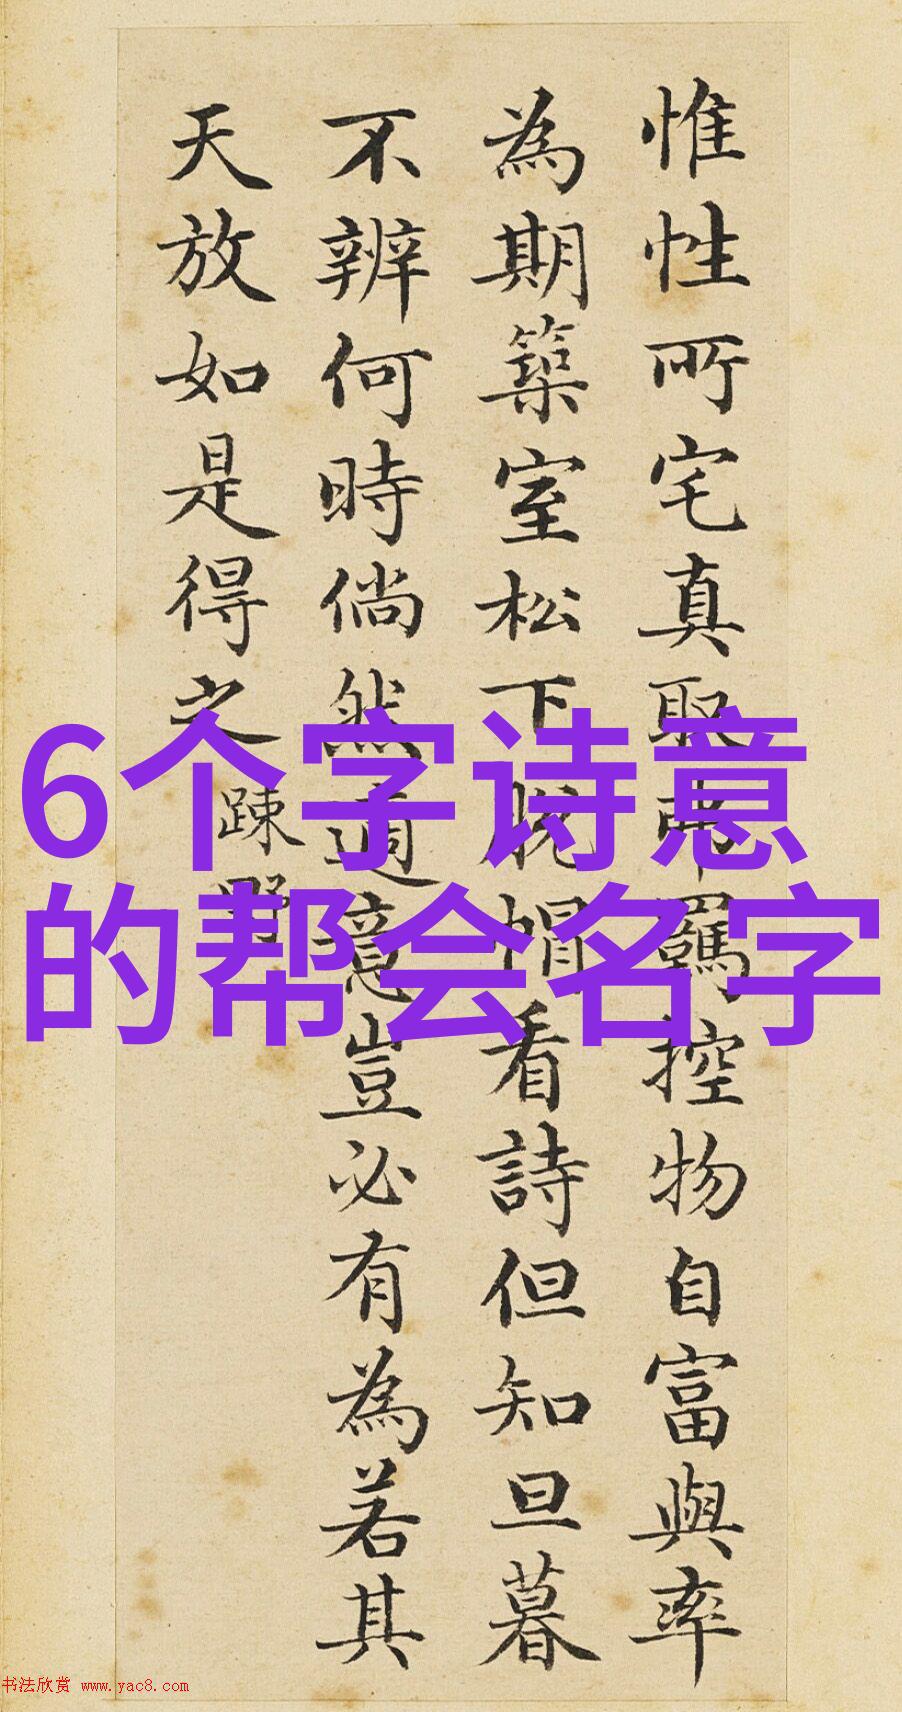 惟性所宅真取弗羈控物自富與率
為期築室松下脫帽看詩但知旦暮
不辨何時倘然適意豈必有為若其
天放如是得之 疎野
6个字诗意
的帮会名字
书法欣赏 www.yac8.com